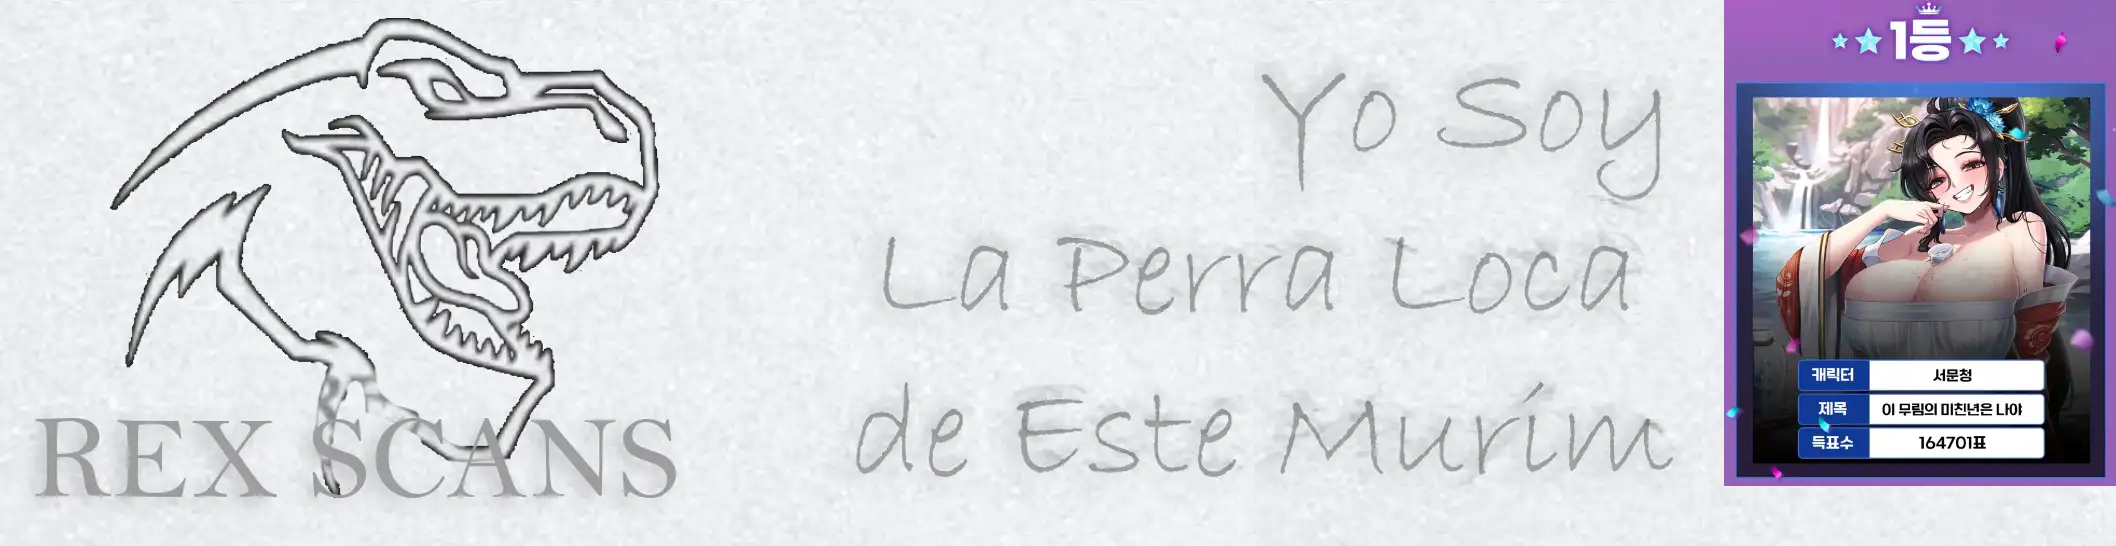 REX SCANS
Yo Soy
La Perra Loca
de Este Murim
1등
캐릭터 서문청
제목 이 무림의 미친년은 나야
득표수 164701표